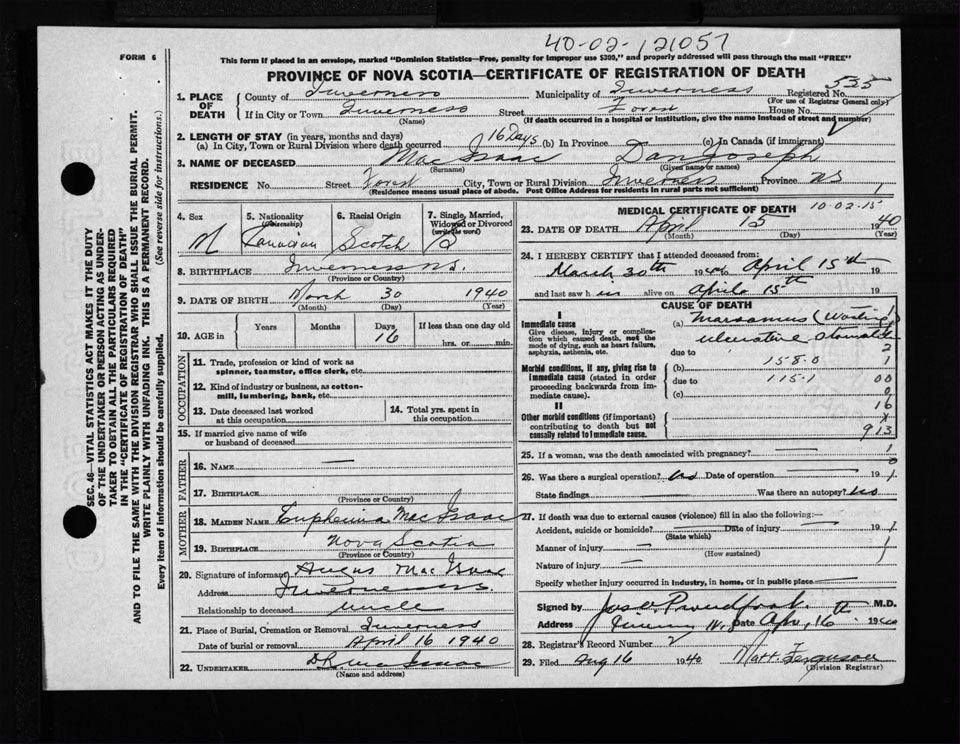 40-02-121057
FORM 6
This form if placed in an envelope, marked "Dominion Statistics—Free, penalty for improper use $300," and properly addressed will pass through the mail "FREE"
PROVINCE OF NOVA SCOTIA—CERTIFICATE OF REGISTRATION OF DEATH
SEC. 46—VITAL STATISTICS ACT MAKES IT THE DUTY
OF THE UNDERTAKER OR PERSON ACTING AS UNDER-
TAKER TO OBTAIN ALL THE PARTICULARS REQUIRED
IN THE "CERTIFICATE OF REGISTRATION OF DEATH"
AND TO FILE THE SAME WITH THE DIVISION REGISTRAR WHO SHALL ISSUE THE BURIAL PERMIT.
WRITE PLAINLY WITH UNFADING INK. THIS IS A PERMANENT RECORD.
Every item of information should be carefully supplied. (See reverse side for instructions.)
1. PLACE OF DEATH County of Inverness Municipality of Inverness Registered No. 535
(For use of Registrar General only)
If in City or Town Inverness Street Forest House No.
(Name) (If death occurred in a hospital or institution, give the name instead of street and number)
2. LENGTH OF STAY (in years, months and days)
(a) In City, Town or Rural Division where death occurred 16 Days (b) In Province (c) In Canada (if immigrant)
3. NAME OF DECEASED Mac Isaac Dan Joseph
(Surname) (Given name or names)
RESIDENCE No. Street Forest City, Town or Rural Division Inverness Province NS
(Residence means usual place of abode. Post Office Address for residents in rural parts not sufficient)
4. Sex M
5. Nationality (Citizenship) Canadian
6. Racial Origin Scotch
7. Single, Married, Widowed or Divorced (write the word) S
8. BIRTHPLACE Inverness NS.
(Province or Country)
9. DATE OF BIRTH March 30 1940
(Month) (Day) (Year)
10. AGE in Years Months Days 16 If less than one day old hrs. or min.
OCCUPATION
11. Trade, profession or kind of work as spinner, teamster, office clerk, etc.
12. Kind of industry or business, as cotton-mill, lumbering, bank, etc.
13. Date deceased last worked at this occupation
14. Total yrs. spent in this occupation
15. If married give name of wife or husband of deceased
FATHER
16. NAME —
17. BIRTHPLACE
(Province or Country)
MOTHER
18. MAIDEN NAME Euphemia Mac Isaac
19. BIRTHPLACE Nova Scotia
(Province or Country)
20. Signature of informant Angus Mac Isaac
Address Inverness NS.
Relationship to deceased uncle
21. Place of Burial, Cremation or Removal Inverness
Date of burial or removal April 16 1940
22. UNDERTAKER D R mac Isaac
(Name and address)
MEDICAL CERTIFICATE OF DEATH 10-02-15
23. DATE OF DEATH April 15 1940
(Month) (Day) (Year)
24. I HEREBY CERTIFY that I attended deceased from:
March 30th 1940 to April 15th 19
and last saw h im alive on April 15th 19
CAUSE OF DEATH
I
Immediate cause
Give disease, injury or complication which caused death, not the mode of dying, such as heart failure, asphyxia, asthenia, etc.
(a) Marasmus (Wasting)
ulcerative Stomatitis
due to
Morbid conditions, if any, giving rise to immediate cause (stated in order proceeding backwards from immediate cause).
(b) 158.0
due to 115.1
(c)
II
Other morbid conditions (if important) contributing to death but not causally related to immediate cause.
2
1
00
16
913
25. If a woman, was the death associated with pregnancy? —
26. Was there a surgical operation? No Date of operation — 19
State findings Was there an autopsy? No
27. If death was due to external causes (violence) fill in also the following:—
Accident, suicide or homicide? — Date of injury — 19
(State which)
Manner of injury —
(How sustained)
Nature of injury —
Specify whether injury occurred in industry, in home, or in public place —
Signed by Jas. Proudfoot M.D.
Address Date Apr. 16th 1940
28. Registrar's Record Number 2
29. Filed Aug 16 1940 Matt. Ferguson
(Division Registrar)